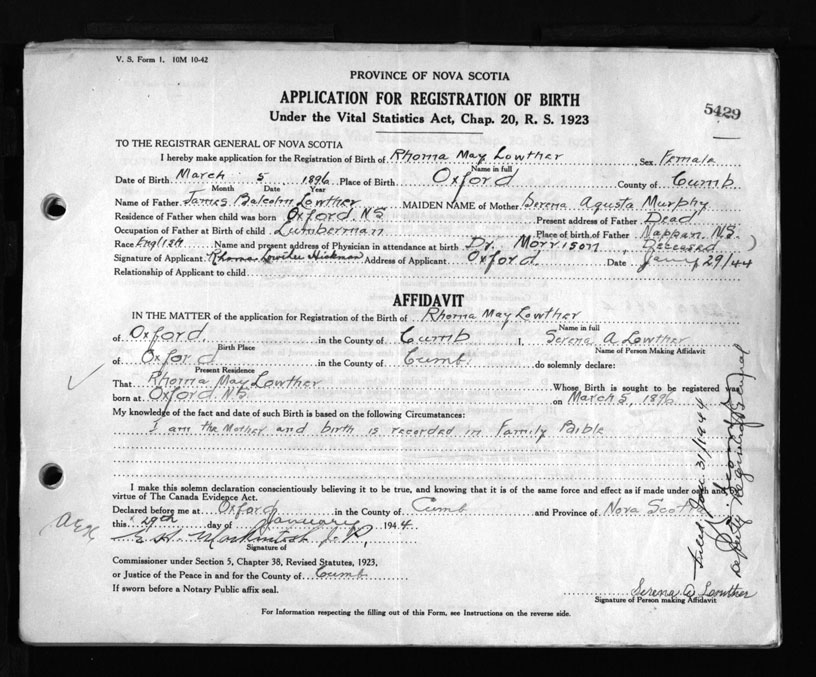 V. S. Form 1. 10M 10-42
PROVINCE OF NOVA SCOTIA
5429
APPLICATION FOR REGISTRATION OF BIRTH
Under the Vital Statistics Act, Chap. 20, R. S. 1923
TO THE REGISTRAR GENERAL OF NOVA SCOTIA
I hereby make application for the Registration of Birth of Rhoma May Lowther, Sex Female
Name in full
Date of Birth March 5 1896 Place of Birth Oxford County of Cumb.
Month Date Year
Name of Father James Balcolm Lowther MAIDEN NAME of Mother Serena Agusta Murphy
Residence of Father when child was born Oxford. N.S Present address of Father Dead
Occupation of Father at Birth of child Lumberman Place of birth of Father Nappan. N.S.
Race English Name and present address of Physician in attendance at birth Dr. Morrison, Deceased
Signature of Applicant Rhoma Lowther Hickman Address of Applicant Oxford. Date Jany 29/44
Relationship of Applicant to child
AFFIDAVIT
IN THE MATTER of the application for Registration of the Birth of Rhoma May Lowther
Name in full
of Oxford. in the County of Cumb I, Serena A Lowther
Birth Place Name of Person Making Affidavit
of Oxford in the County of Cumb. do solemnly declare:
Present Residence
That Rhoma May Lowther Whose Birth is sought to be registered was
born at Oxford N.S on March 5, 1896
My knowledge of the fact and date of such Birth is based on the following Circumstances:
I am the Mother and birth is recorded in Family Bible
I make this solemn declaration conscientiously believing it to be true, and knowing that it is of the same force and effect as if made under oath and
virtue of The Canada Evidence Act.
Declared before me at Oxford in the County of Cumb and Province of Nova Scotia
this 29th day of January 1944.
E. H. Mackintosh J.P.
Signature of
Commissioner under Section 5, Chapter 38, Revised Statutes, 1923,
or Justice of the Peace in and for the County of Cumb
If sworn before a Notary Public affix seal.
Serena A Lowther
Signature of Person making Affidavit
For Information respecting the filling out of this Form, see Instructions on the reverse side.
Filed Jan. 31/1944
Deputy Registrar General